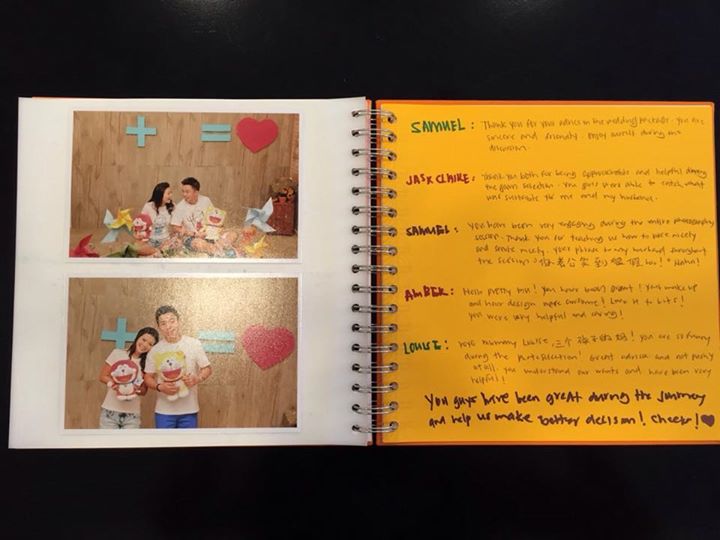 SAMUEL: Thank you for your advice in the wedding package. You are
sincere and friendly. Enjoy myself during the
discussion.
JAS & CLAIRE: Thank you both for being approachable and helpful during
the gown selection. You guys were able to
suitable for me and my husband.
SAMUEL: You have been very engaging during the entire photography
session. Thank you for teaching us how to pose nicely
and smile nicely. Your phrase to my husband throughout
the session "你老公笑到 " Haha!
AMBER: Hello pretty ! You have been great! Your make up
and hair design were awesome! Love it to bits!
You were very helpful and caring!
LOUISE: mummy Louise, 三个孩子的妈! You are so funny
during the photo selection! Great advise and not pushy
at all. You understand our wants and have been very
helpful!
You guys have been great during the journey
and help us make better decision! Cheers!